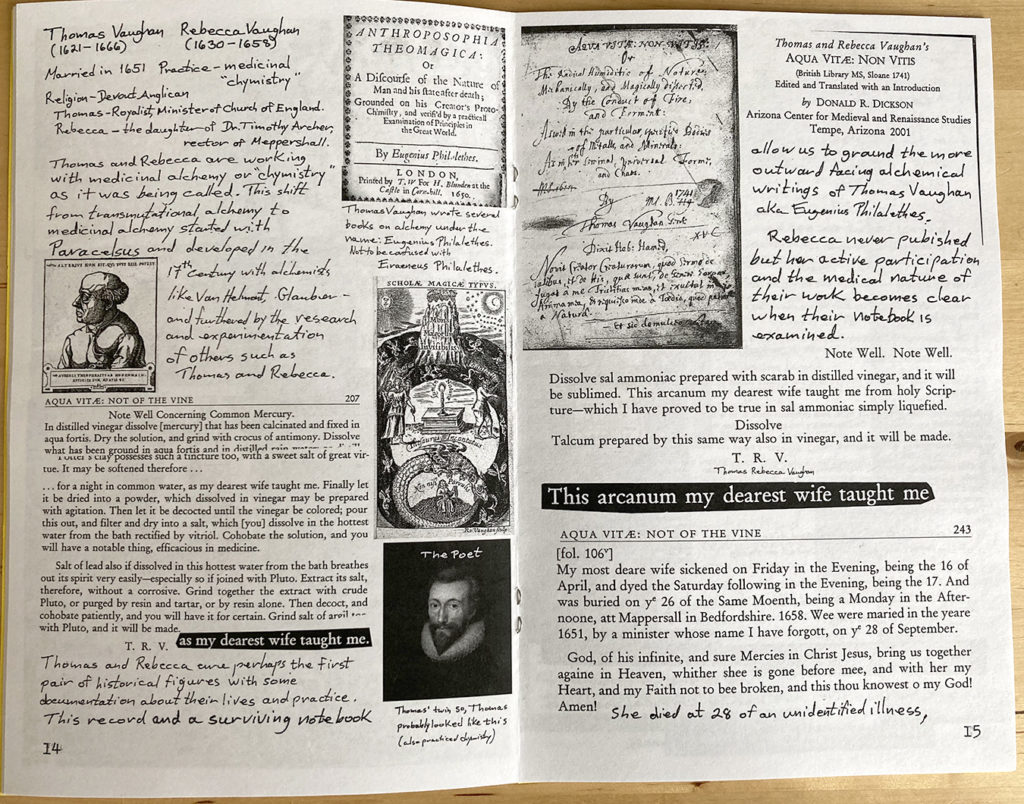 Thomas Vaughan Rebecca Vaughan
(1621-1666) (1630-1658)
Married in 1651 Practice-medicinal
"chymistry"
Religion-Devout Anglican
Thomas-Royalist, Minister of Church of England.
Rebecca-the daughter of Dr. Timothy Archer,
rector of Meppershall.
Thomas and Rebecca are working
with medicinal alchemy or "chymistry"
as it was being called. This shift
from transmutational alchemy to
medicinal alchemy started with
Paracelsus and developed in the
17th century with alchemists
like Van Helmont, Glauber-
and furthered by the research
and experimentation
of others such as
Thomas and Rebecca.
AQUA VITÆ: NOT OF THE VINE 207
Note Well Concerning Common Mercury.
In distilled vinegar dissolve [mercury] that has been calcinated and fixed in
aqua fortis. Dry the solution, and grind with crocus of antimony. Dissolve
what has been ground in aqua fortis and in distilled
clay possesses such a tincture too, with a sweet salt of great vir-
tue. It may be softened therefore . . .
. . . for a night in common water, as my dearest wife taught me. Finally let
it be dried into a powder, which dissolved in vinegar may be prepared
with agitation. Then let it be decocted until the vinegar be colored; pour
this out, and filter and dry into a salt, which [you] dissolve in the hottest
water from the bath rectified by vitriol. Cohobate the solution, and you
will have a notable thing, efficacious in medicine.
Salt of lead also if dissolved in this hottest water from the bath breathes
out its spirit very easily—especially so if joined with Pluto. Extract its salt,
therefore, without a corrosive. Grind together the extract with crude
Pluto, or purged by resin and tartar, or by resin alone. Then decoct, and
cohobate patiently, and you will have it for certain. Grind salt of
with Pluto, and it will be made.
T. R. V.
as my dearest wife taught me.
Thomas and Rebecca are perhaps the first
pair of historical figures with some
documentation about their lives and practice.
This record and a surviving notebook
14
ANTHROPOSOPHIA
THEOMAGICA:
Or
A Discourse of the Nature of
Man and his state after death;
Grounded on his Creator's Proto-
Chimistry, and verifi'd by a practicall
Examination of Principles in
the Great World.
By Eugenius Philalethes.
LONDON,
Printed by T. W for H. Blunden at the
Castle in Corn-hill. 1650.
Thomas Vaughan wrote several
books on alchemy under the
name: Eugenius Philalethes.
Not to be confused with
Eiraeneus Philalethes.
SCHOLÆ MAGICÆ TYPVS.
The Poet
Thomas' twin so, Thomas
probably looked like this
(also practiced chymistry)
AQUA VITÆ: NON VITIS:
Or
The Radical Humiditie of Nature:
Mechanically, and Magically dissected,
By the Conduct of Fire,
and Ferment:
As well in the particular, specific Bodies
of Metalls, and Minerals:
As in its seminal, universal Forme,
and Chaos.
By
1741
Thomas Vaughan Gent.
Thomas and Rebecca Vaughan's
AQUA VITÆ: NON VITIS
(British Library MS, Sloane 1741)
Edited and Translated with an Introduction
by DONALD R. DICKSON
Arizona Center for Medieval and Renaissance Studies
Tempe, Arizona 2001
allow us to ground the more
outward facing alchemical
writings of Thomas Vaughan
aka Eugenius Philalethes.
Rebecca never pubished
but her active participation
and the medical nature of
their work becomes clear
when their notebook is
examined.
Note Well. Note Well.
Dissolve sal ammoniac prepared with scarab in distilled vinegar, and it will
be sublimed. This arcanum my dearest wife taught me from holy Scrip-
ture—which I have proved to be true in sal ammoniac simply liquefied.
Dissolve
Talcum prepared by this same way also in vinegar, and it will be made.
T. R. V.
Thomas Rebecca Vaughan
This arcanum my dearest wife taught me
AQUA VITÆ: NOT OF THE VINE 243
[fol. 106v]
My most deare wife sickened on Friday in the Evening, being the 16 of
April, and dyed the Saturday following in the Evening, being the 17. And
was buried on ye 26 of the Same Moenth, being a Monday in the After-
noone, att Mappersall in Bedfordshire. 1658. Wee were maried in the yeare
1651, by a minister whose name I have forgott, on ye 28 of September.
God, of his infinite, and sure Mercies in Christ Jesus, bring us together
againe in Heaven, whither shee is gone before mee, and with her my
Heart, and my Faith not to bee broken, and this thou knowest o my God!
Amen!
She died at 28 of an unidentified illness,
15